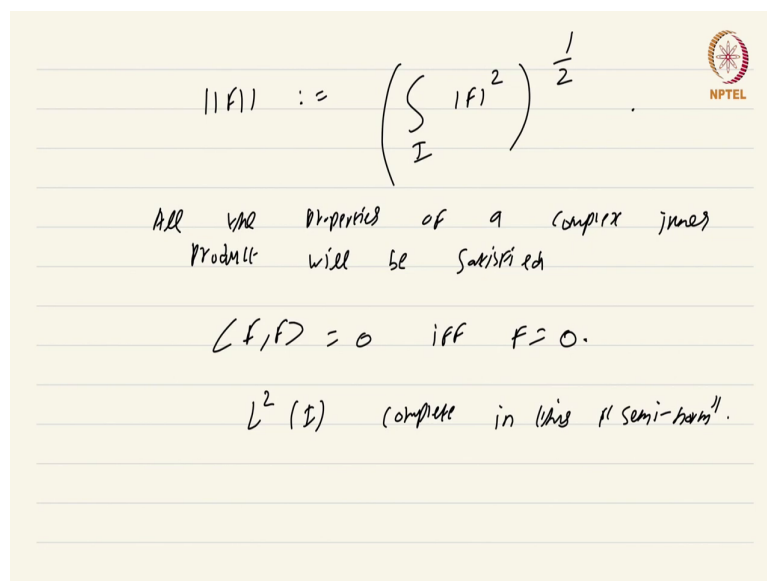 ||F|| := (∫_I |F|²)^{1/2} .
NPTEL
All the properties of a complex inner
product will be satisfied
⟨F,F⟩ = 0 iff F = 0.
L² (I) complete in this "semi-norm".